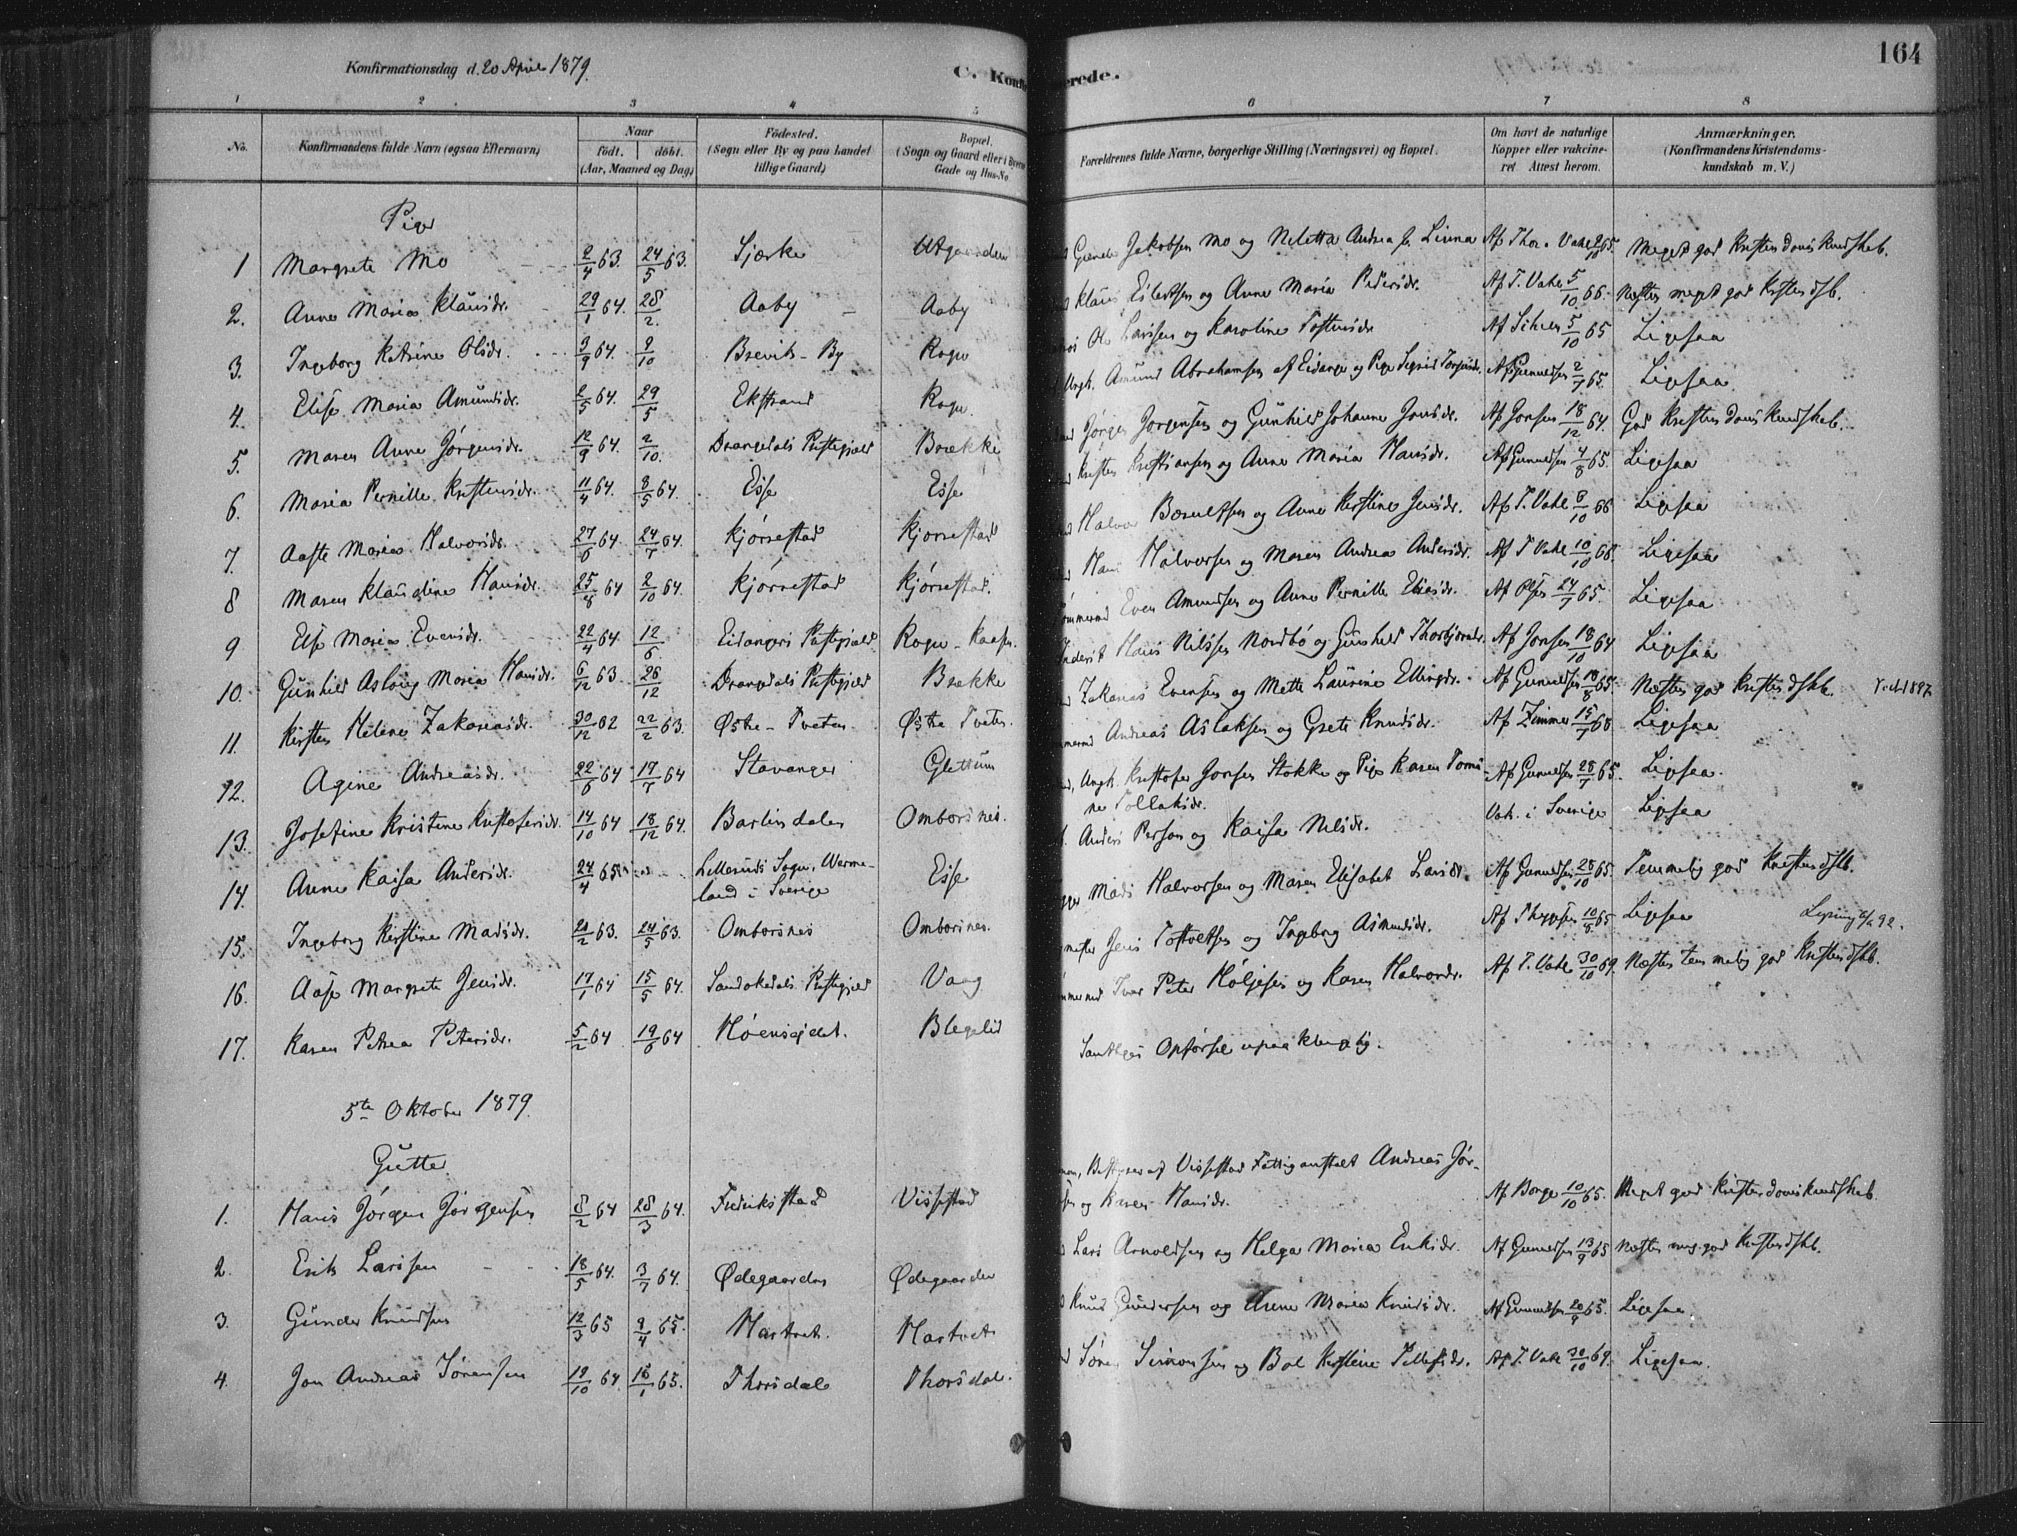 Konfirmationsdag d. 20 April 1879.
C. Konfi
erede.
164
1 2 3 4 5 6 7 8
No.
Konfirmandens fulde Navn (ogsaa Efternavn)
Naar
födt. döbt.
(Aar, Maaned og Dag)
Födested.
(Sogn eller By og paa Landet
tillige Gaard)
Bopæl.
(Sogn og Gaard eller i Byerne
Gade og Hus-No
Forældrenes fulde Navne, borgerlige Stilling (Næringsvei) og Bopæl.
Om havt de naturlige
Kopper eller vakcine-
ret Attest herom.
Anmærkninger.
(Konfirmandens Kristendoms-
kundskab m. V.)
Piger
1 Margrete Mo 2/4 63. 24/5 63. Jakobsen Mo og Andrea Meget god Kristendomskundskab.
2. Anne Maria Klausdr. 29/1 64. 28/2. Aaby Aaby Klaus Eilertsen og Anne Maria Pedersdr. Af T. Vahl 5/10 66. Næsten meget god Kristendskb.
3. Ingeborg Katrine Olsdr. 3/9 64. 9/10 Brevik-By Rogn Ole Larssen og Karoline 5/10 65 Ligesaa
4. Elise Maria Amundsdr. 2/5 64. 29/5 Ekstrand Rogn. Ungk. Amund Abrahamsen af Eidanger og Pige Af Gunnulfsen 2/7 65. Ligesaa
5. Maren Anne Jørgensdr. 12/9 64. 2/10. Drangedals Prestegjeld Brække Jørgen Jørgensen og Gunhild Johanne Jonsdr. Af Jonsen 18/12 64. God Kristendomskundskab.
6. Maria Pernille Kristensdr. 11/4 64. 8/5 64. Esse Esse Kristen Kristiansen og Anne Maria Hansdr. Af Gunnulfsen 4/8 65. Ligesaa
7. Aaste Maria Halvorsdr. 27/6 64. 24/7 64. Kjørrestad Kjørrestad Halvor og Anne Kirstine Jensdr. Af T. Vahl 6/10 66 Ligesaa
8 Maren Klaudine Hansdr. 25/8 64 2/10 64. Kjørrestad Kjørrestad. Hans Halvorsen og Maren Andrea Andersdr. Af T Vahl 10/10 68. Ligesaa
9 Else Maria Evensdr. 22/4 64. 12/6 Eidangers Prestegjeld Rogn - Even Amundsen og Anne Pernille Eliasdr. 24/7 65. Ligesaa
10. Gunhild Aslaug Maria Hansdr. 6/12 63. 26/12 Drangedals Prestegjeld Brække Hans Nilssen Nordbø og Gunhild Thorbjørnsdr. Af Jonsen 18/10 64 Ligesaa
11. Kirsten Helene Zakariasdr. 30/12 62 22/2 63. Østre-Tveten Østre Tveten. Zakarias Evensen og Mette Laurine Ellingsdr. Af Gunnulfsen 18/8 65. Næsten god Kristendskb.
12. Agine Andreasdr. 22/6 64 17/7 64 Stavanger Glittum Andreas Aslaksen og Grete Knudsdr. Af Zimmer 15/7 68 Ligesaa
13. Josefine Kristine Kristofersdr. 14/10 64 18/12 64. Omborsnes. Ungk. Kristofer Jonsen Stokke og Pige Karen Tomi-
ne Tollaksdr. Af Gunnulfsen 28/7 65. Ligesaa.
14. Anne Kaisa Andersdr. 24/4 65 Sogn, Werme-
land i Sverige Esse Anders Person og Kaisa Nilsdr. Vak. i Sverige Ligesaa
15. Ingeborg Kirstine Madsdr. 63. 24/5 63. Omborsnes Omborsnes. Mads Halvorsen og Maren Elisabet Larsdr. Af Gunnulfsen 28/10 65. Temmelig god Kristendskb.
16. Aase Margrete Jensdr. 17/1 64 15/5 64. Sandøkedals Prestegjeld Vaag Jens og Ingeborg Asmundsdr. 10/8 65 Ligesaa
17. Karen Petrea Petersdr. 5/2 64 19/6 64 Blegelid Ivar Peter og Karen Halvorsdr. Af T. Vahl 30/10 69. Næsten temmelig god Kristendskb.
Samtliges Opførsel upaaklagelig.
5te Oktober 1879.
Gutter.
Bestyrer af Vissestad Fattiganstalt Andreas Jør-
1. Hans Jørgen Jørgensen 8/2 64 28/3 64. Fredriksstad Vissestad og Karen Hansdr. Af Borge 10/10 65. Meget god Kristendomskundskab.
2. Erik Larssen 18/5 64. 3/7 64. Ødegaarden Ødegaarden Lars Arnoldsen og Helga Maria Eriksdr. Af Gunnulfsen 13/9 65 Næsten meg. god Kristendskb.
3. Gunder Knudsen 12/3 65 9/4 65. Hartvet. Hartvet Knud Gundersen og Anne Maria Knudsdr. Af Gunnulfsen 20/9 65. Ligesaa.
4. Jon Andreas Sørensen 19/10 64. 15/1 65. Thorsdal Thorsdal. Søren Simonsen og Bol Kirstine Tellefsdr. Af T. Vahl 30/10 69. Ligesaa.